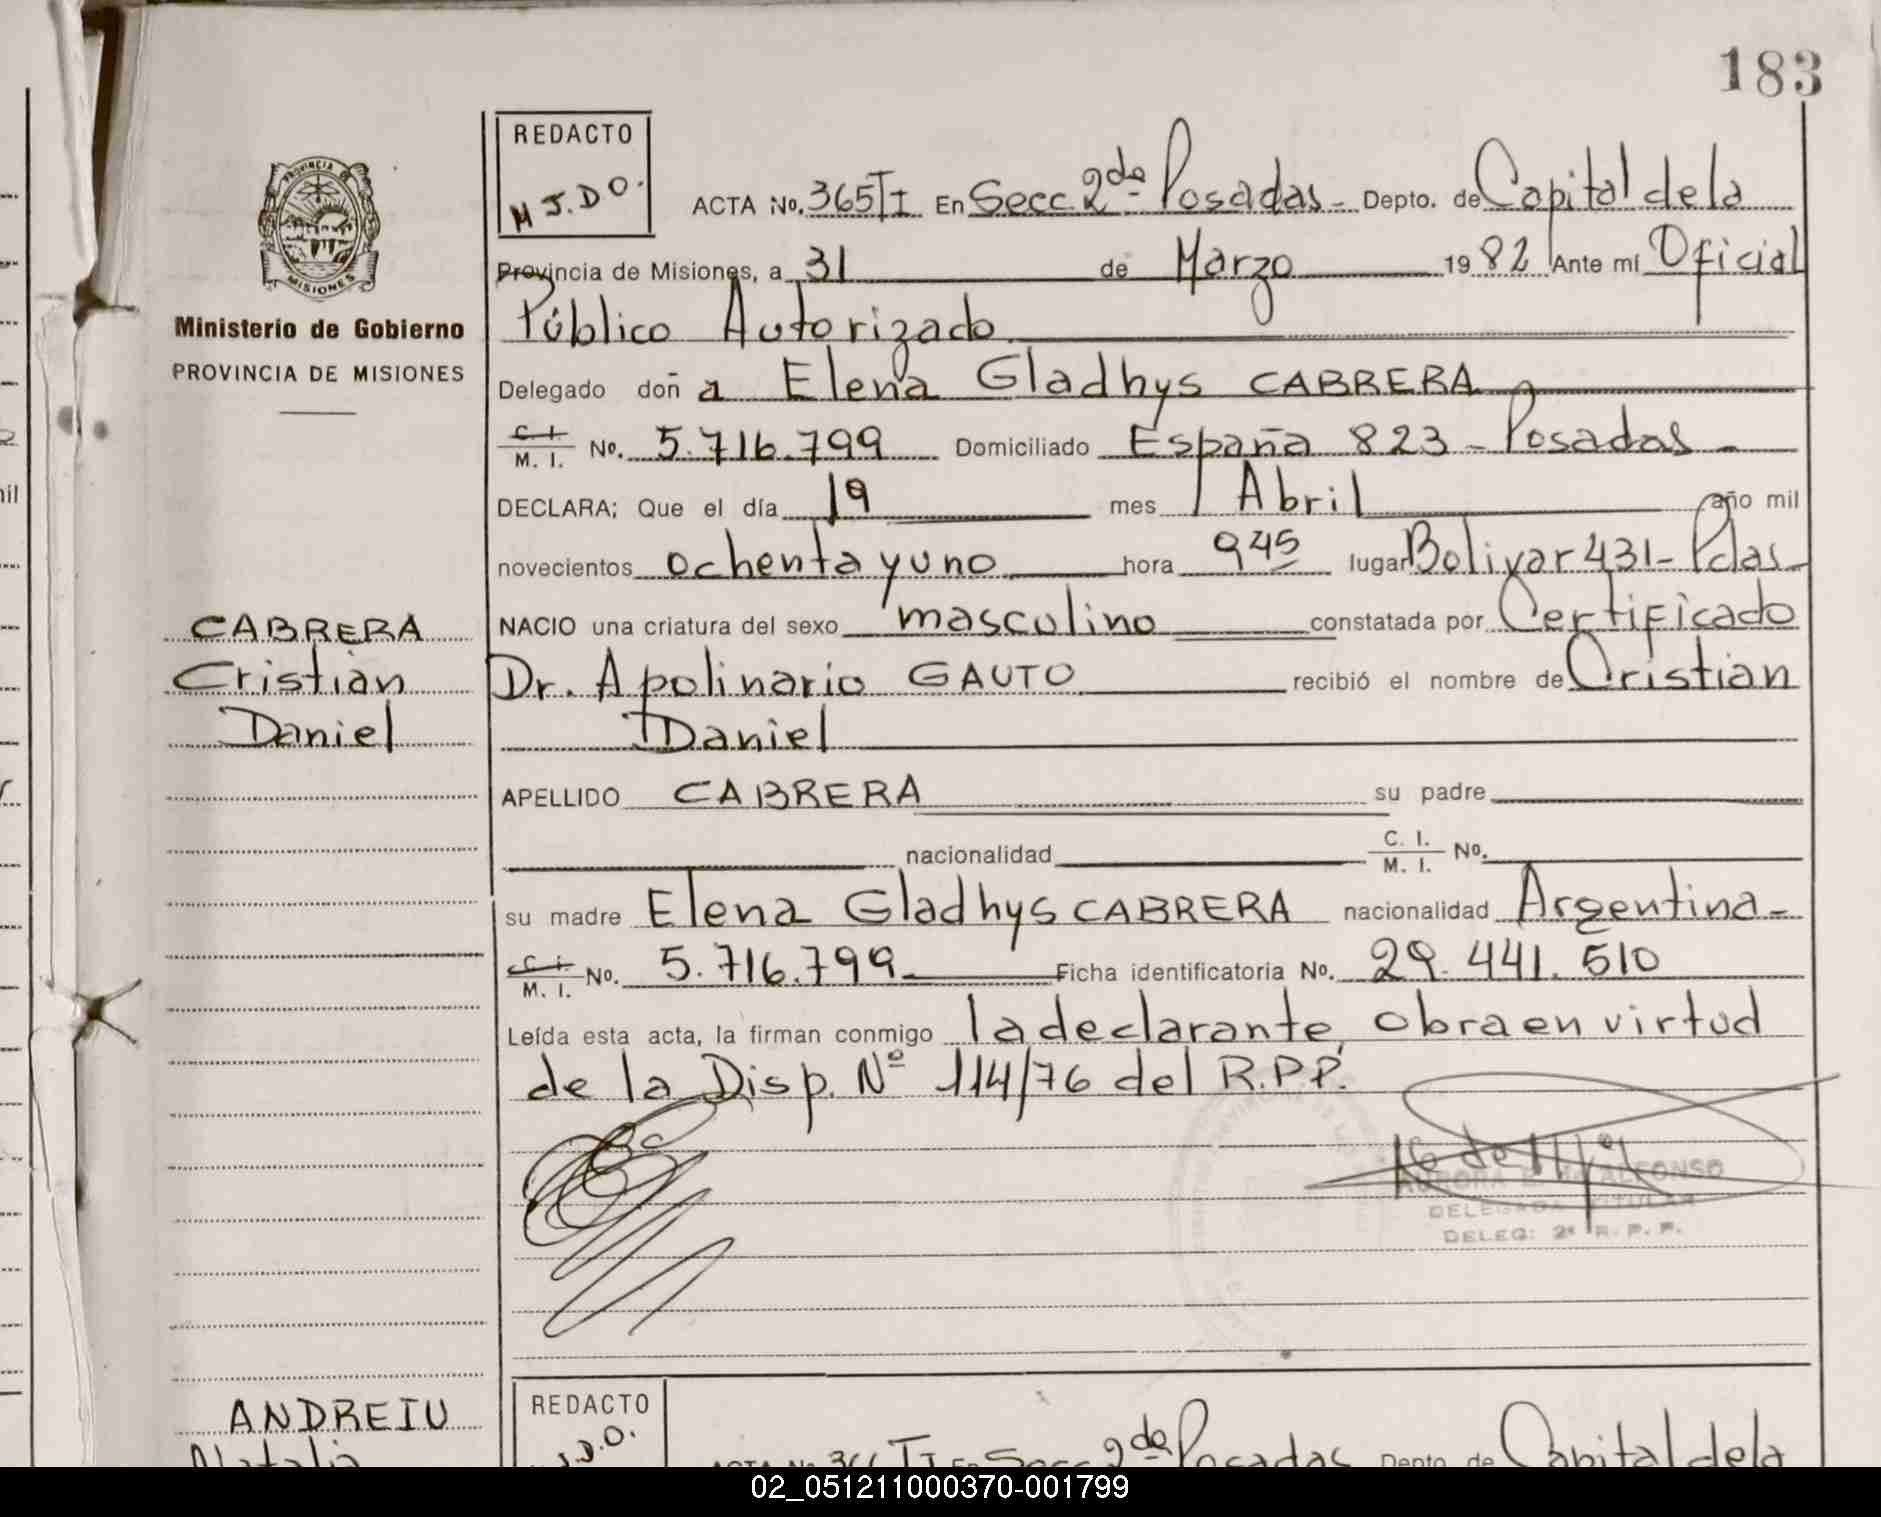 183
REDACTO
M J.D O.
PROVINCIA DE
MISIONES
Ministerio de Gobierno
PROVINCIA DE MISIONES
ACTA No. 365 TI En Secc 2da Posadas - Depto. de Capital de la
Provincia de Misiones, a 31 de Marzo 1982 Ante mí Oficial
Público Autorizado
Delegado doña Elena Gladhys CABRERA
C. I. / M. I. No. 5.716.799 Domiciliado España 823 - Posadas -
DECLARA; Que el día 19 mes Abril año mil
novecientos ochenta y uno hora 9 45 lugar Bolivar 431 - Pdas -
CABRERA
NACIO una criatura del sexo masculino constatada por Certificado
Cristian
Dr. Apolinario GAUTO recibió el nombre de Cristian
Daniel
Daniel
APELLIDO CABRERA su padre
nacionalidad C. I. / M. I. No.
su madre Elena Gladhys CABRERA nacionalidad Argentina -
C. I. / M. I. No. 5.716.799 Ficha identificatoria No. 29.441.510
Leída esta acta, la firman conmigo la declarante, obra en virtud
de la Disp. Nº 114/76 del R.P.P.
AURORA ALFONSO
DELEGADA TITULAR
DELEG: 2ª R. P. P.
ANDREIU
Natalia
REDACTO
J.D.O.
ACTA No. 366 TI En Secc 2da Posadas Depto. de Capital de la
02_051211000370-001799